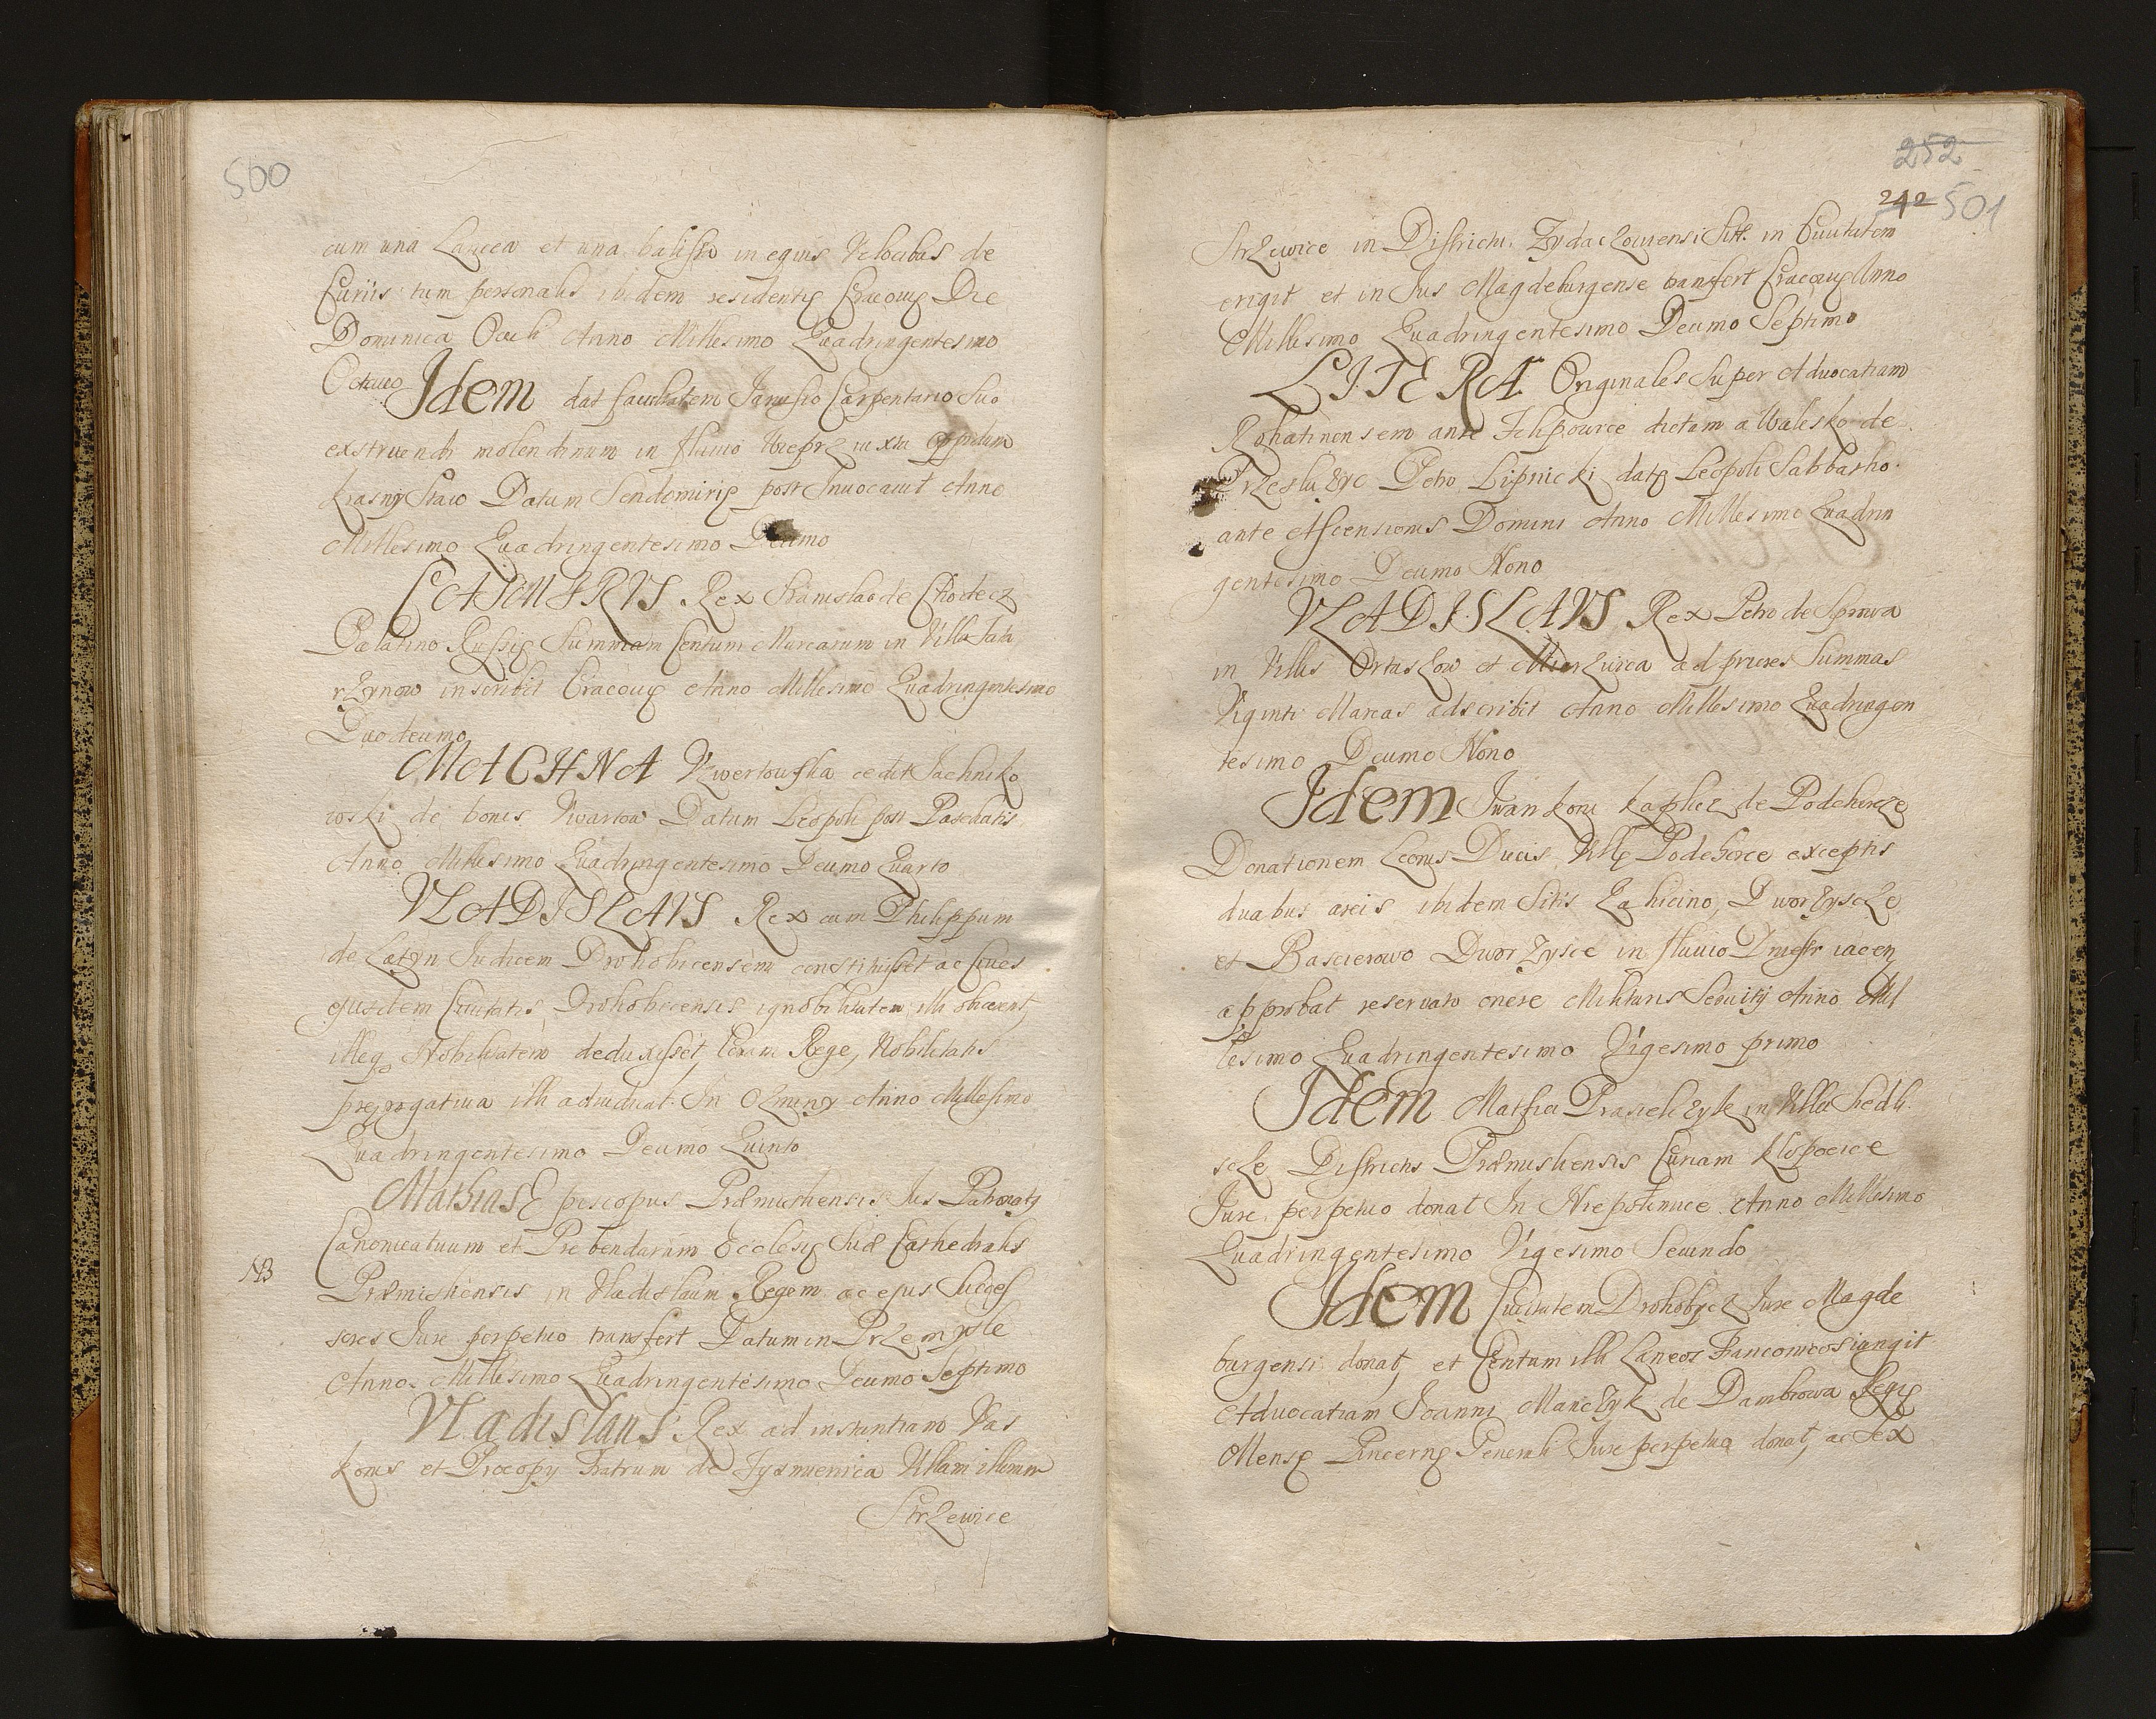 500
cum una Lancea et una balista in equis Velocibus de
Curiis tum personalis ibidem residentię Cracovię Die
Dominica Oculi Anno Millesimo Quadringentesimo
Octavo
Idem dat facultatem Janusio Carpentario Suo
exstruendi molendinum in fluvio Wieprz iuxta Oppidum
Krasny Staw Datum Sendomirię post Invocavit Anno
Millesimo Quadringentesimo Decimo
CASIMIRVS Rex Stanislao de Chodecz
Palatino Russię Summam Centum Marcarum in Villa Tata
rzynow inscribit Cracovię Anno Millesimo Quadringentesimo
Duodecimo
MACHNA cedit Jachniko
wski de bonis Datum Leopoli post Paschatis
Anno Millesimo Quadringentesimo Decimo Quarto
VLADISLAVS Rex cum Philippum
de Judicem Drohobicensem constituisset ac Cives
ejusdem Civitatis Drohobicensis ignobilitatem illi obiicerent,
illeq Nobilitatem deduxisset Coram Rege, Nobilitatis
pręrogativa illi adiudicat. In Anno Millesimo
Quadringentesimo Decimo Quinto
Mathias Episcopus Prӕmisliensis Jus Patronatq
Canonicatuum et Prebendarum Ecclesię Suӕ Cathedralis
NB
Prӕmisliensis in Vladislaum Regem ac ejus Succes
sores Jure perpetuo transfert Datum in Przemysle
Anno Millesimo Quadringentesimo Decimo Septimo
Vladislaus Rex ad instantiam Was
konis et Procopy Fratrum de Tysmienica Villam illorum
Strzewice
252
242 501
Strzewice in Districtu Zydaczoviensi Sitt. in Civitatem
erigit et in Jus Magdeburgense transfert Cracovię Anno
Millesimo Quadringentesimo Decimo Septimo
LITERA Originales Super Advocatiam
Rohatinensem ante Filipowice dictam a Walesko de
Przesluzyc Petro Lipnicki datę Leopoli Sabbatho
ante Ascensionis Domini Anno Millesimo Quadrin
gentesimo Decimo Nono
VLADISLAVS Rex Petro de Sprowa
in Villis et ad priores Summas
Viginti Marcas adscribit Anno Millesimo Quadringen
tesimo Decimo Nono
Idem Iwan koni de
Donationem Leonis Ducis Villę exceptis
duabus areis ibidem Sitis Dworzyscze
et Dworzysce in fluvio Dniestr iacen,
approbat reservato onere Militaris Servitij Anno Mil
lesimo Quadringentesimo Vigesimo primo
Idem in Villa Siedli
scze Districtus Prӕmisliensis Curiam
Jure perpetuo donat In Niepolomice Anno Millesimo
Quadringentesimo Vigesimo Secundo
Idem Civitatem Drohobycz Jure Magde
burgensi donat, et Centum illi Laneos Franconicos iungit
Advocatiam Joanni Manczyk de Dambrowa Regię
Mensę Pincernę Generali Jure perpetuo donat, ac Sex